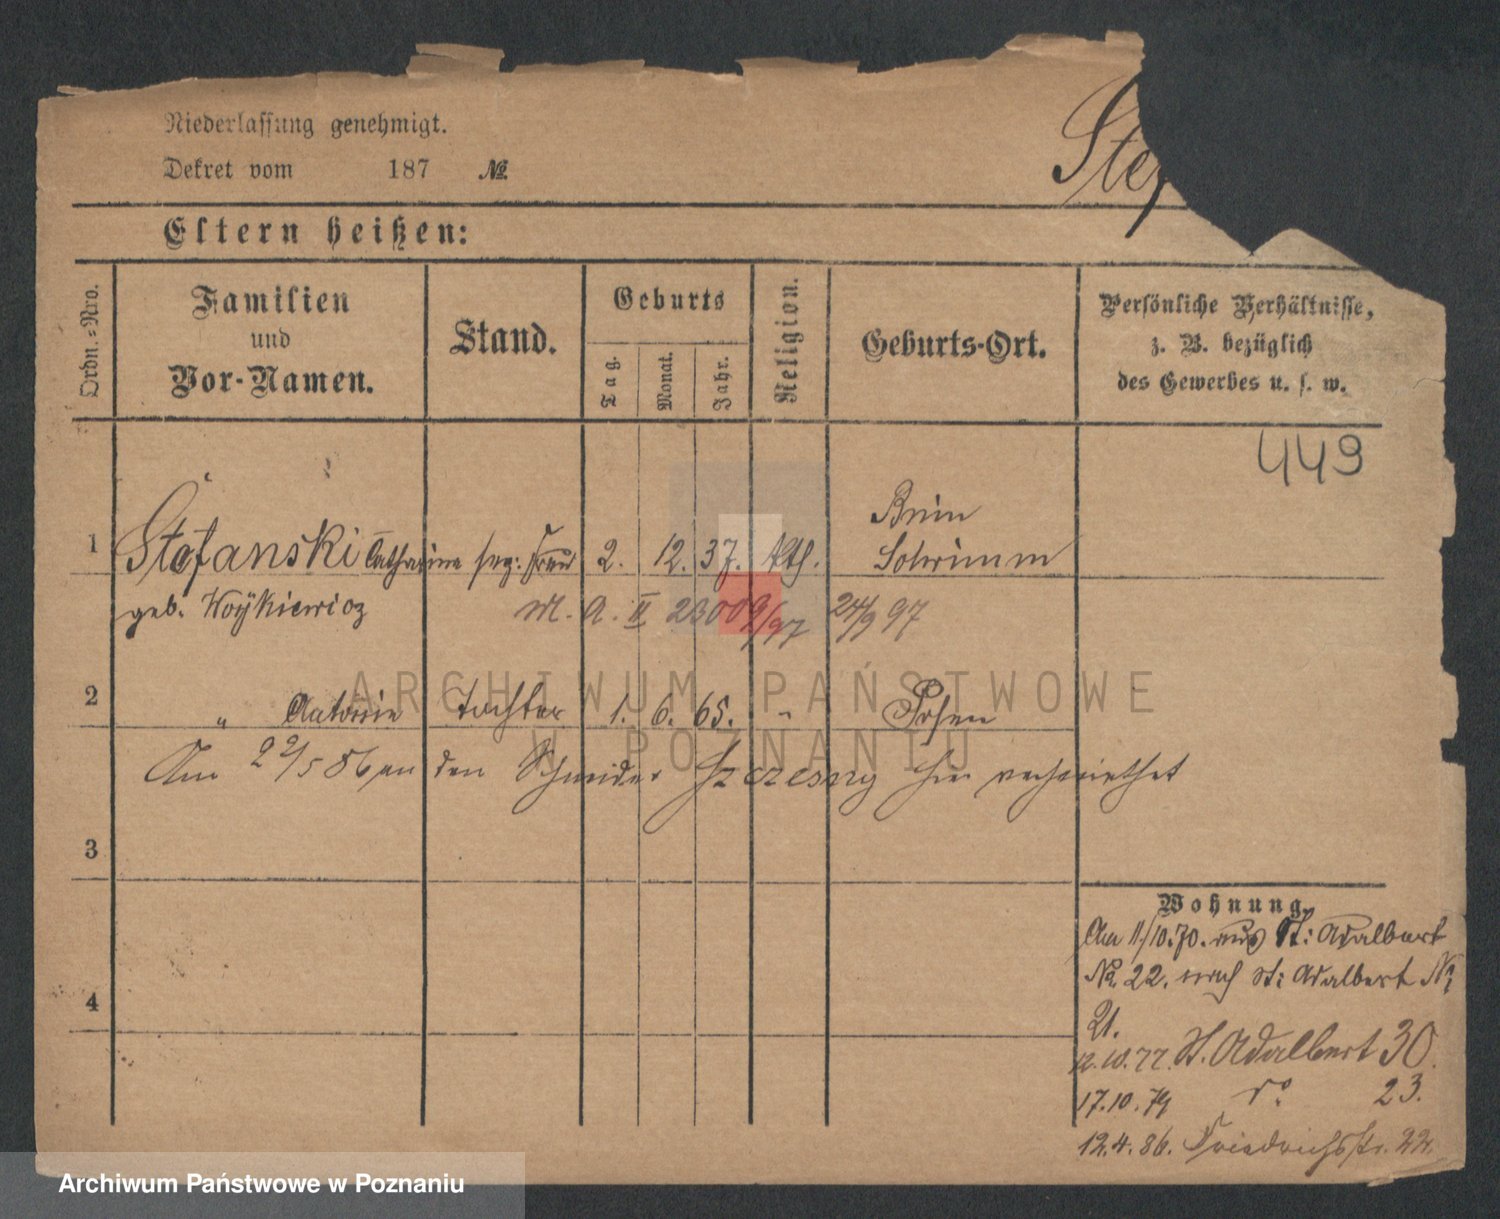 Niederlassung genehmigt.
Dekret vom 187 №
Stef
Eltern heißen:
Ordn.-Nro.
Familien
und
Vor-Namen.
Stand.
Geburts
Tag.
Monat.
Jahr.
Religion.
Geburts-Ort.
Persönliche Verhältnisse,
z. B. bezüglich
des Gewerbes u. s. w.
449
1 Stefanski Catharina sep: Frau 2. 12. 37. kth. Brin
Schrimm
geb. Woÿkiewicz M. A. II 23009/97 24/9 97
2 " Antonie Tochter 1. 6. 65. " Posen
Am 22/5 86 an den Schneider Szczesny hier verheirathet
3
4
Wohnung.
Am 11/10.70. aus St: Adalbert
No. 22. nach St: Adalbert No
21.
12.10.77. St. Adalbert 30.
17.10.79 do. 23.
12.4.86. Friedrichsstr. 22.
ARCHIWUM PAŃSTWOWE
W POZNANIU
Archiwum Państwowe w Poznaniu